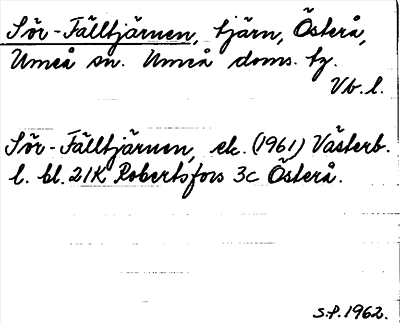 Sör-Fälltjärnen, tjärn, Österå,
Umeå sn. Umeå doms. tg.
Vb. l.
Sör-Fälltjärnen, ek. (1961) Västerb.
l. bl. 21K Robertsfors 3c Österå.
S.P. 1962.